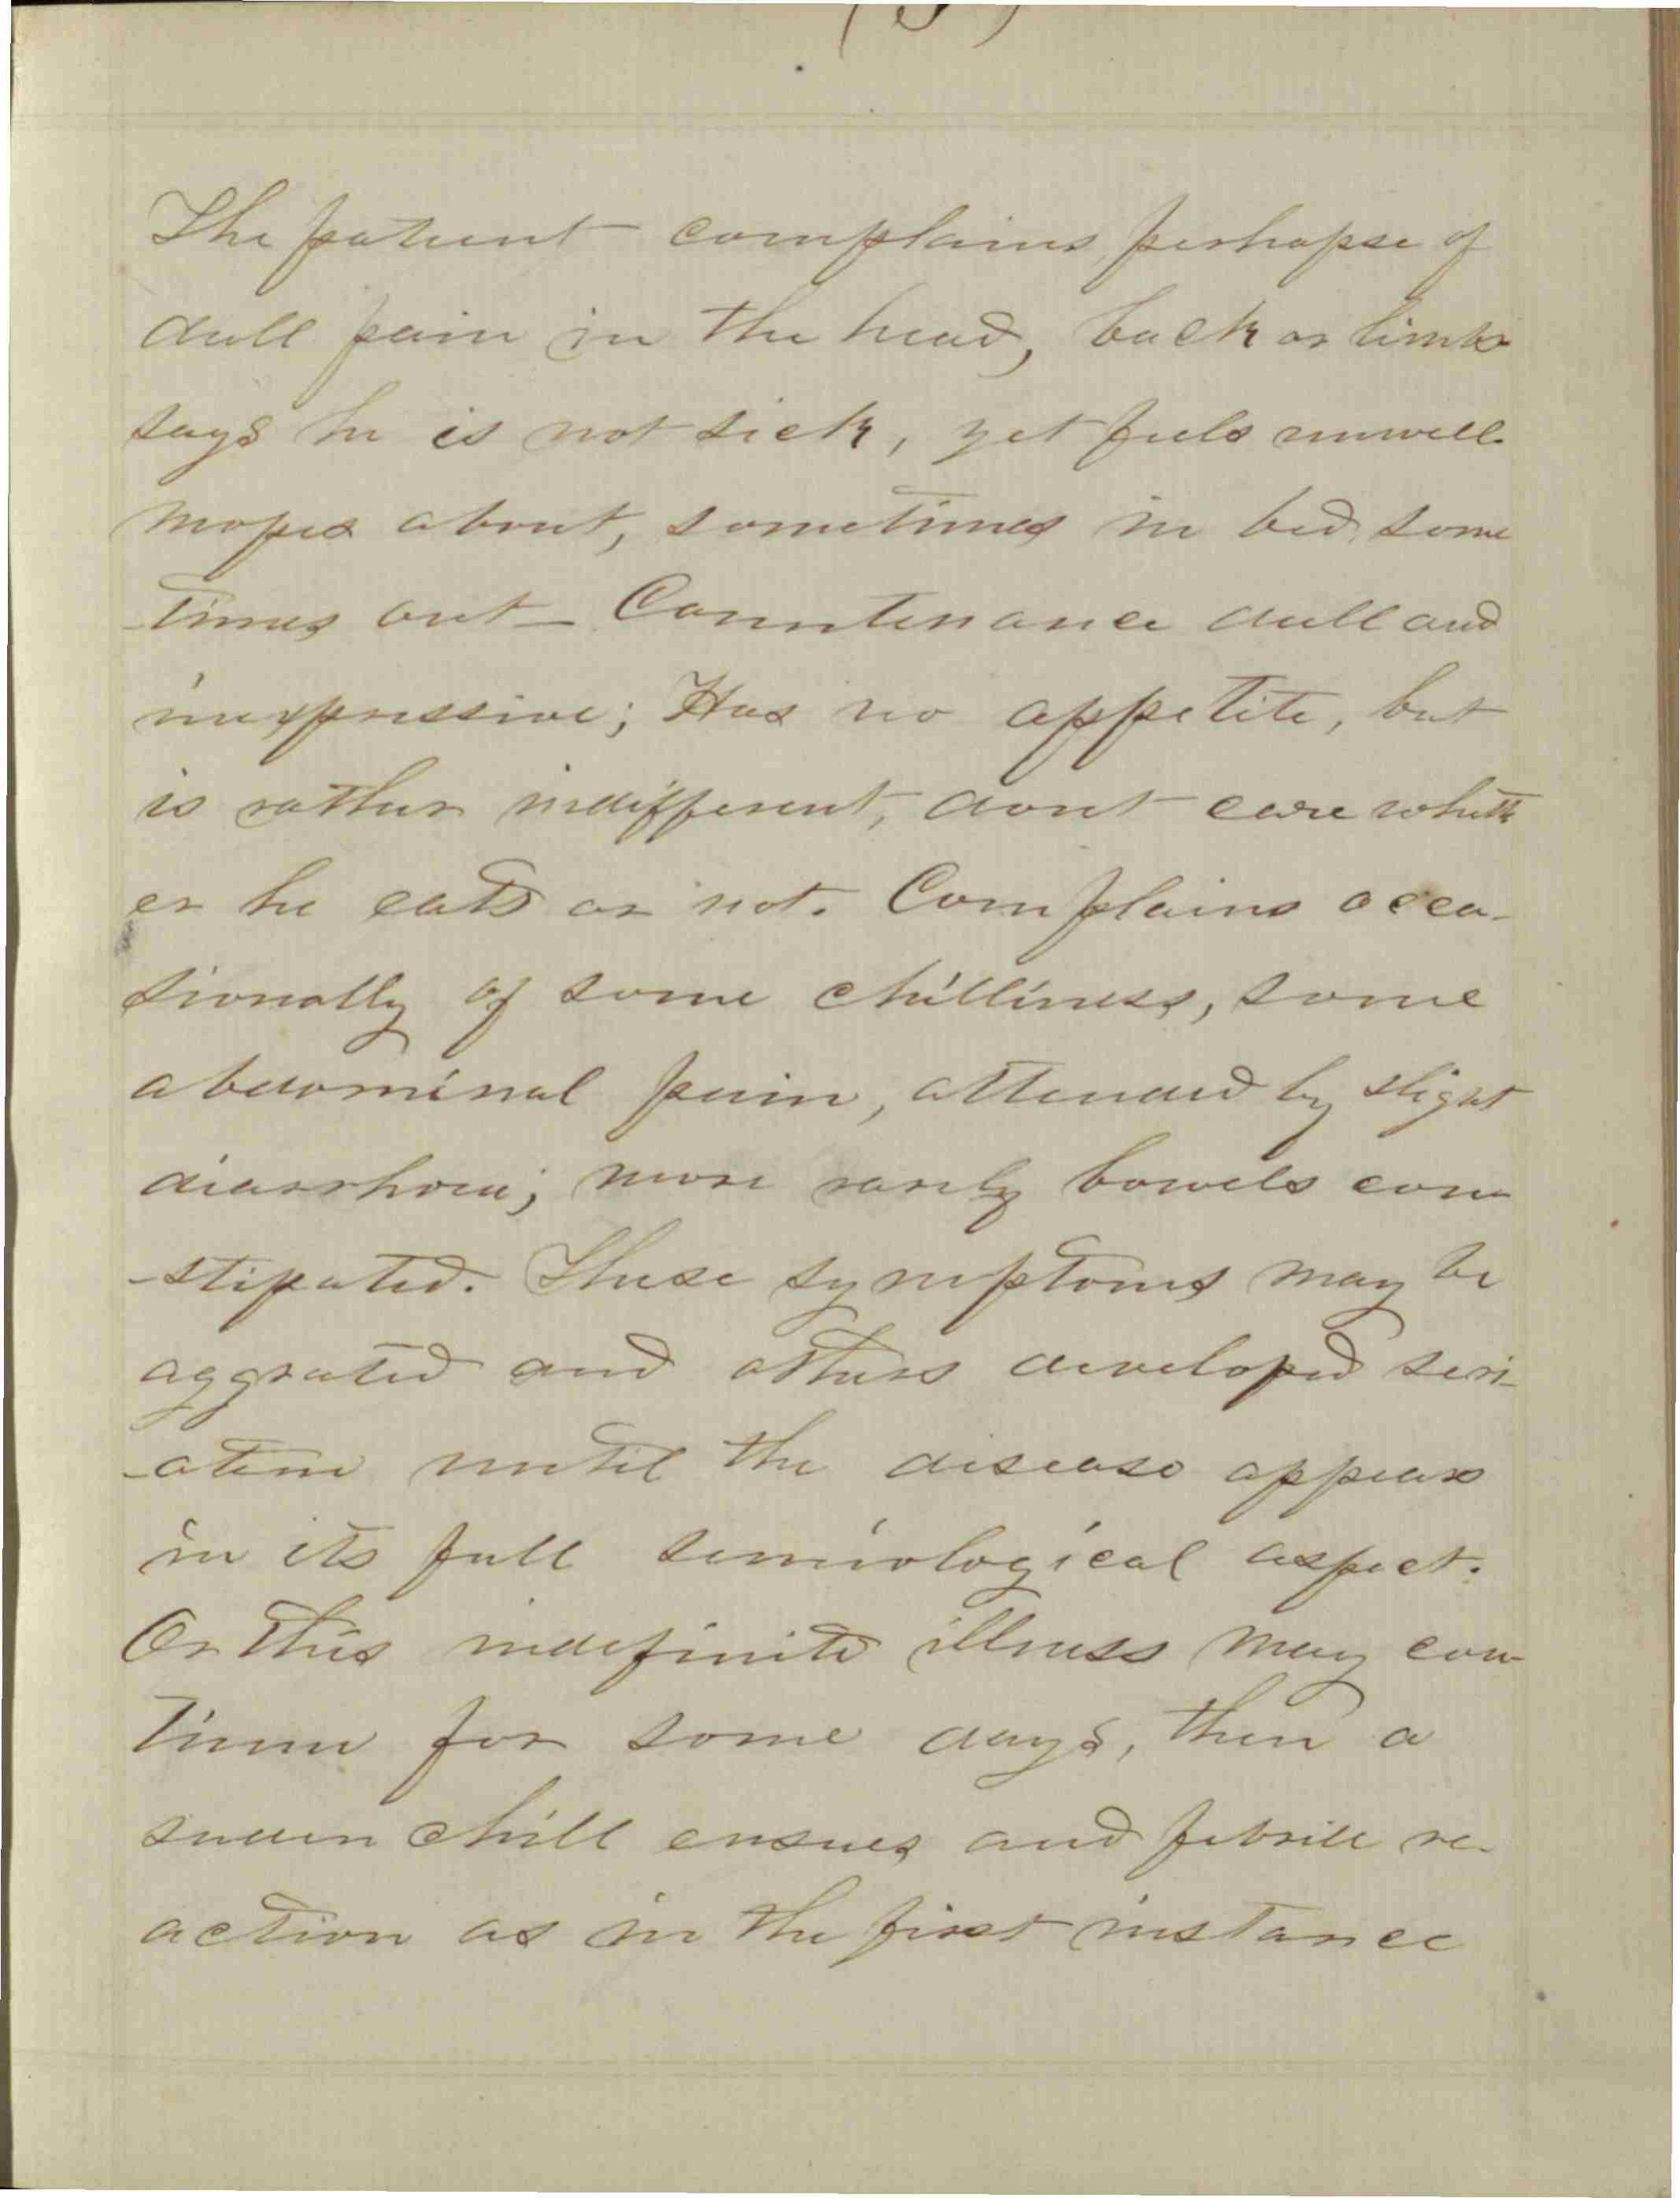 The patient complains perhapse of
dull pain in the head, back or limbs
says he is not sick, yet feels unwell.
mopes about, sometimes in bed some
-times out - Countenance dull and
inexpressive; Has no appetite, but
is rather indifferent, dont care wheth
er he eats or not. Complains occa-
sionally of some chilliness, some
abdominal pain, attended by slight
diarrhoea; more rarely bowels con
-stipated. These symptoms may be
aggrated and others developed seri-
-atim until the disease appears
in its full semiological aspect.
Or this indefinite illness may con-
tinue for some days, then a
sudden chill ensues and febrile re-
action as in the first instance